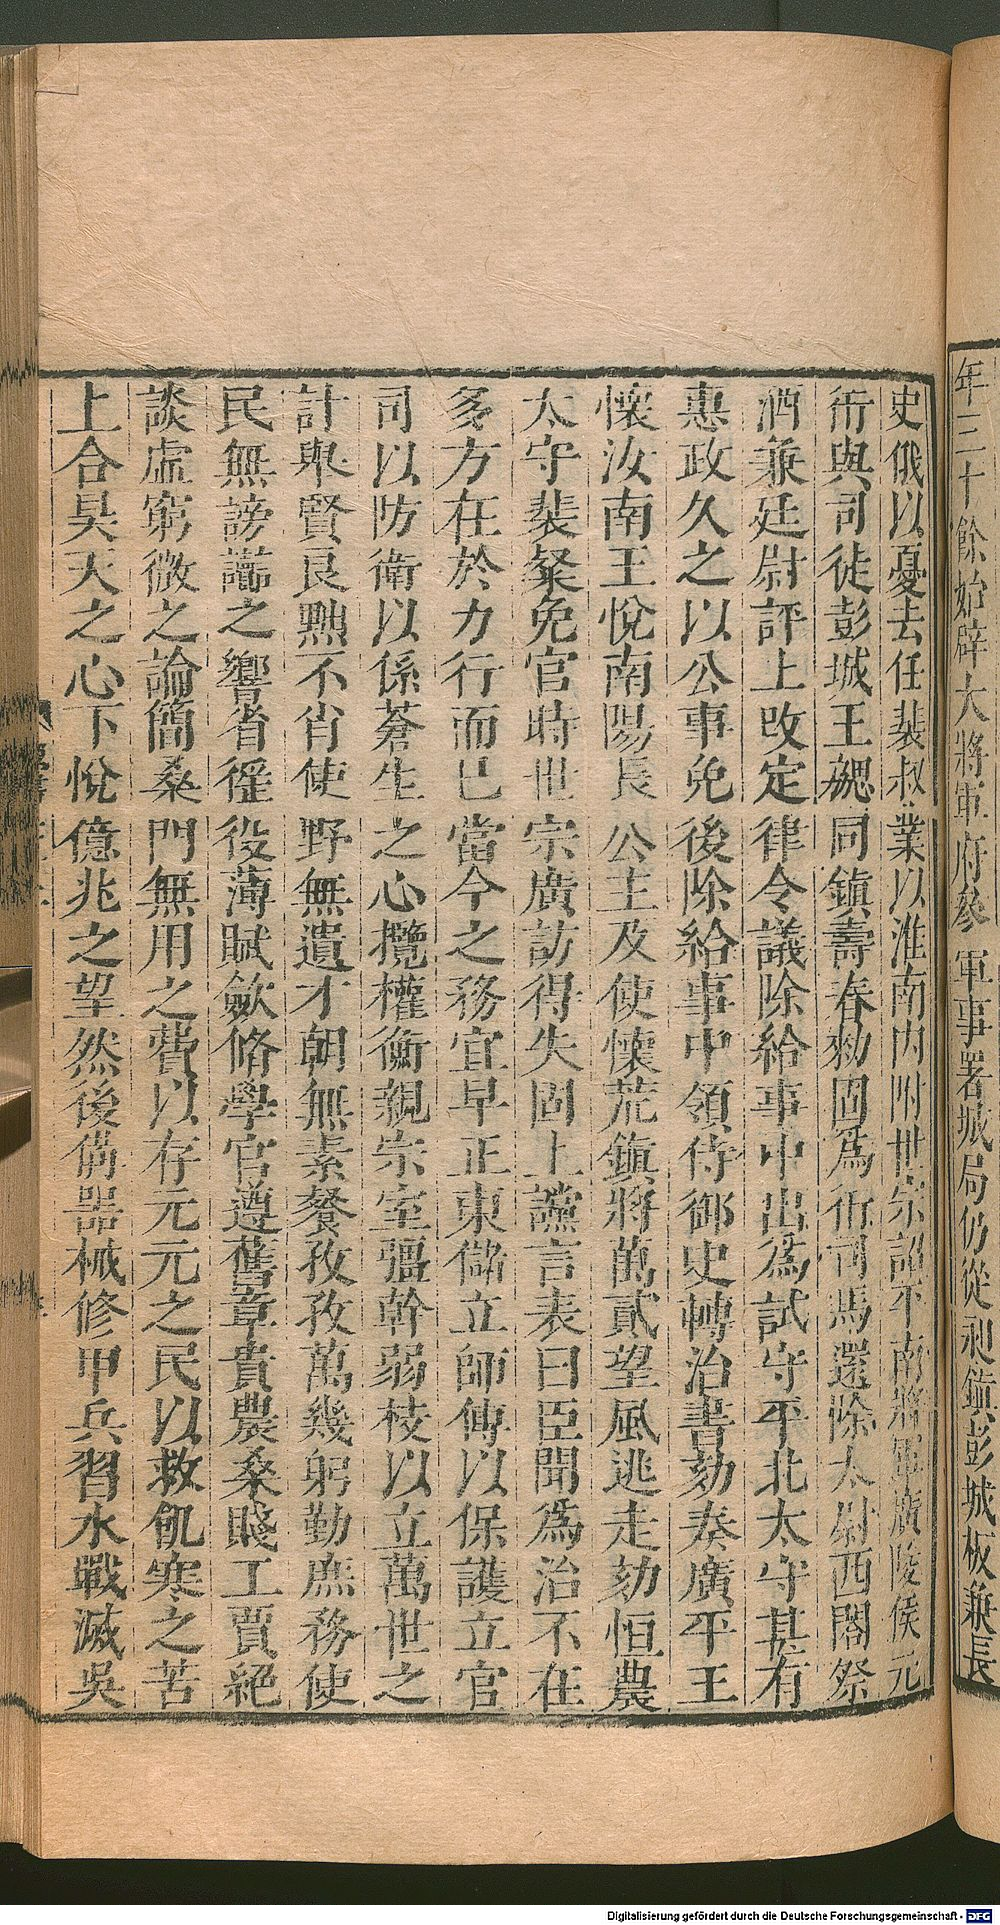 年三十餘始辟大將軍府參軍事署城局仍從刺鎮彭城板兼長
史俄以憂去任裴叔業以淮南內附世宗詔平南將軍廣陵侯元
衍與司徒彭城王勰同鎮壽春勑固爲衍司馬還除太尉西閤祭
酒兼廷尉評上改定律令議除給事中出爲試守平北太守甚有
惠政久之以公事免後除給事中領侍御史轉治書劾奏廣平王
懷汝南王悅南陽長公主及使懷荒鎮將萬貳望風逃走劾恒農
太守裴粲免官時世宗廣訪得失固上讜言表曰臣聞爲治不在
多方在於力行而已當今之務宜早正東儲立師傅以保護立官
司以防衛以係蒼生之心攬權衡親宗室彊幹弱枝以立萬世之
計舉賢良黜不肖使野無遺才朝無素餐孜孜萬幾躬勤庶務使
民無謗讟之響省徭役薄賦歛脩學官遵舊章貴農桑賤工賈絕
談虛窮微之論簡桑門無用之費以存元元之民以救飢寒之苦
上合昊天之心下悅億兆之望然後備器械修甲兵習水戰滅吳
Digitalisierung gefördert durch die Deutsche Forschungsgemeinschaft - DFG